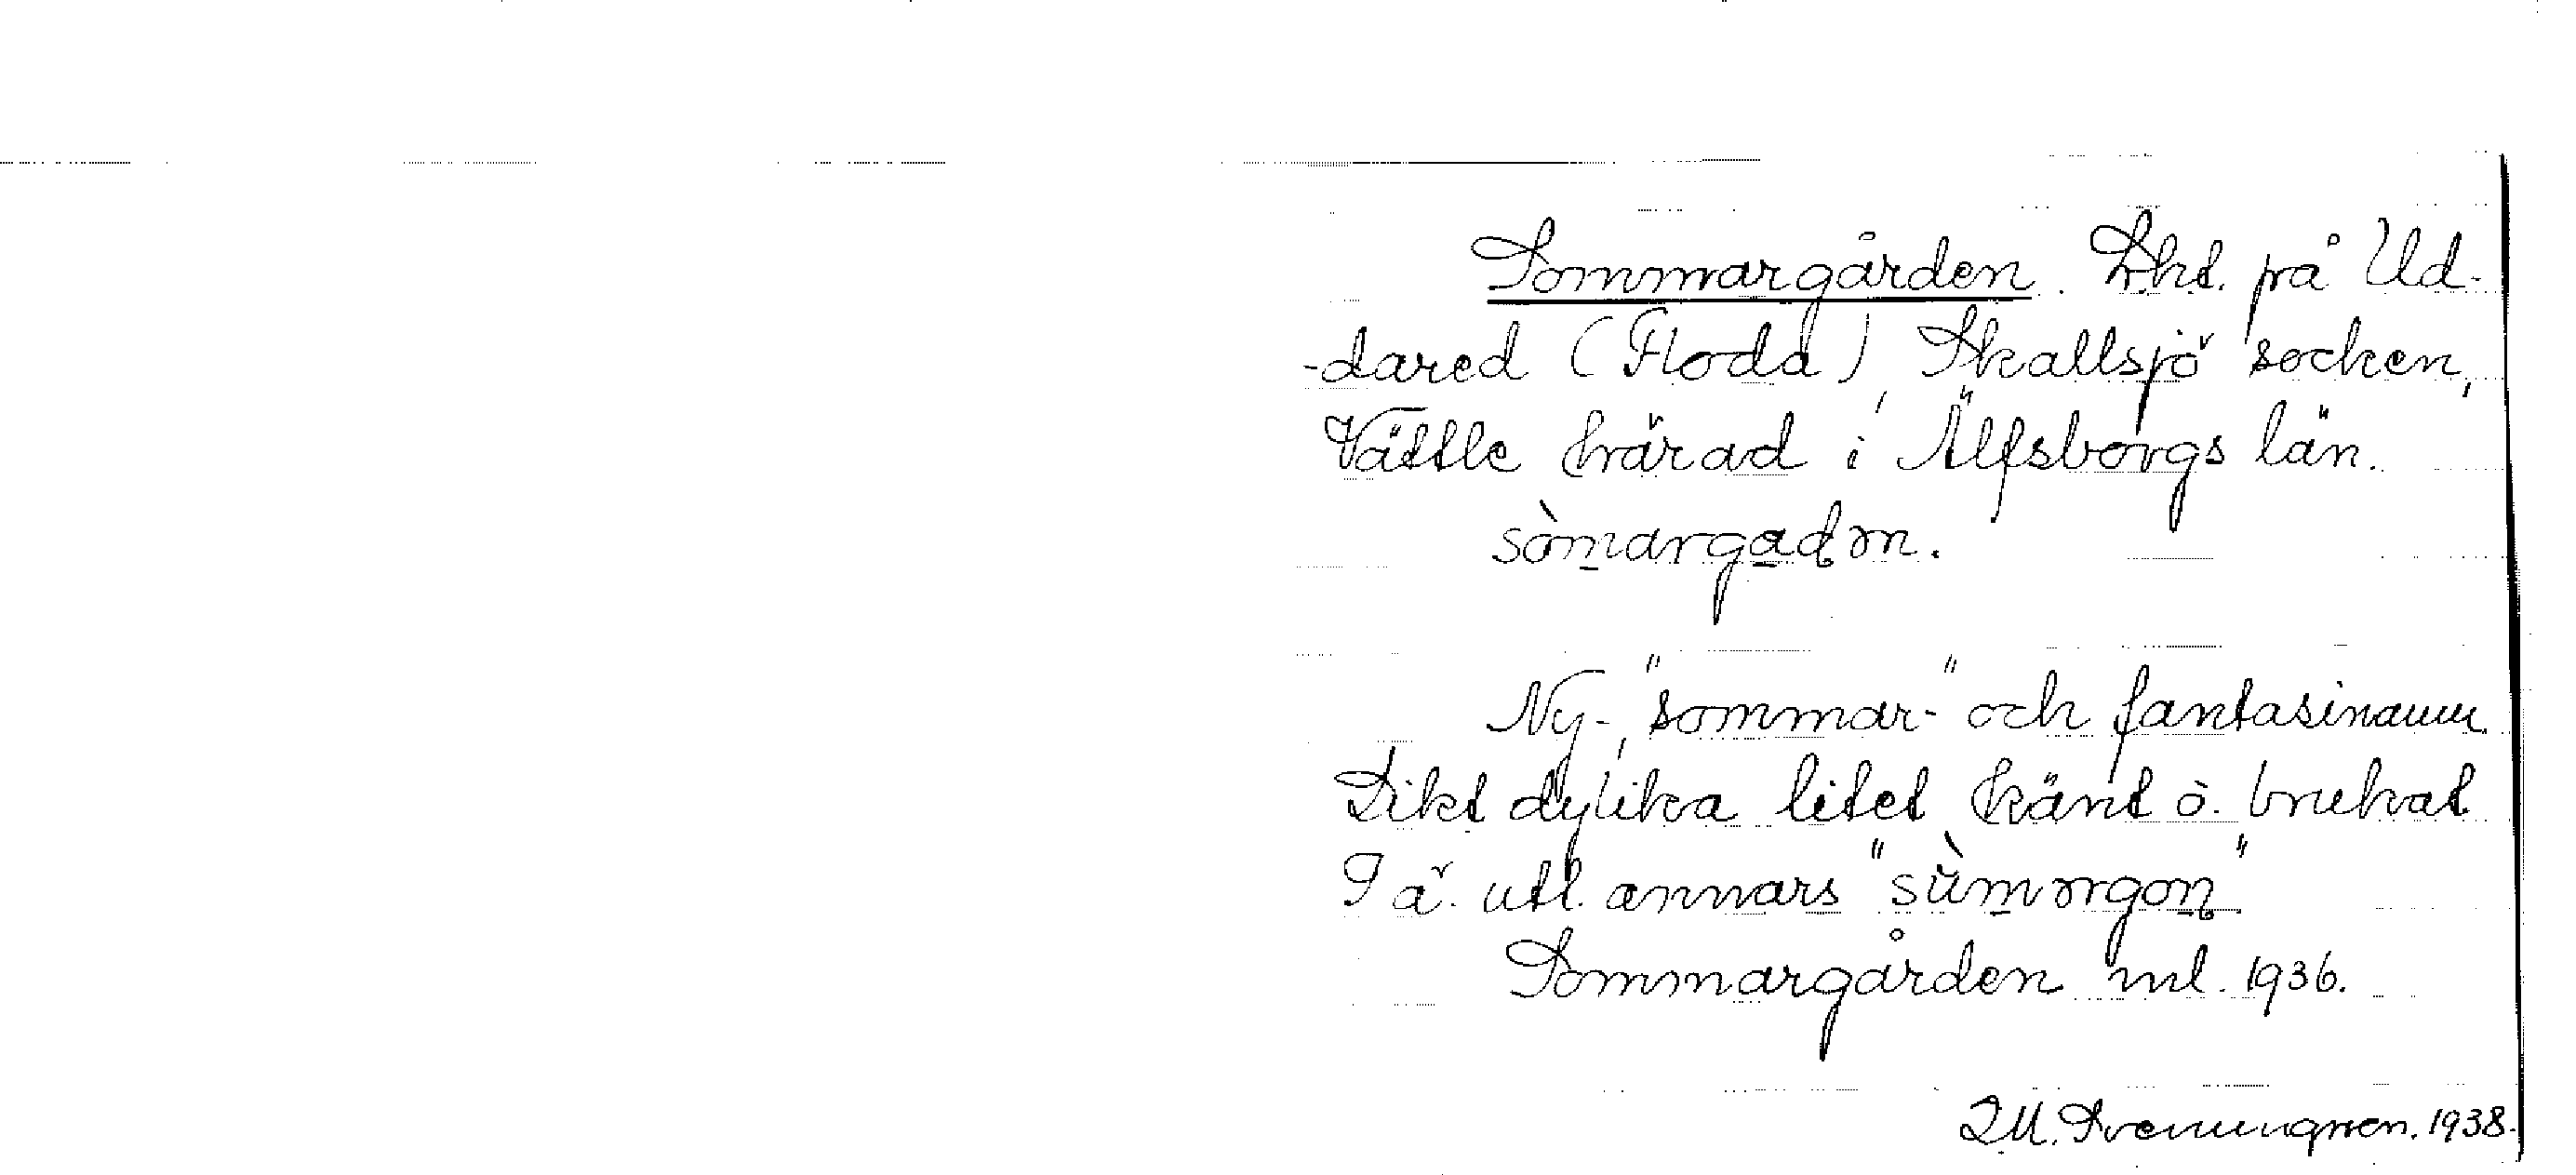 Sommargården. Lht. på Ud-
-dared (Floda), Skallsjö socken,
Vättle härad i Älfsborgs län.
sòmargadən.
Ny-, "sommar-" och fantasinamn.
Dikt dylika litet känt o. brukat
I ä. utl. annars "sùmərgon"
Sommargården ml. 1936.
1938.